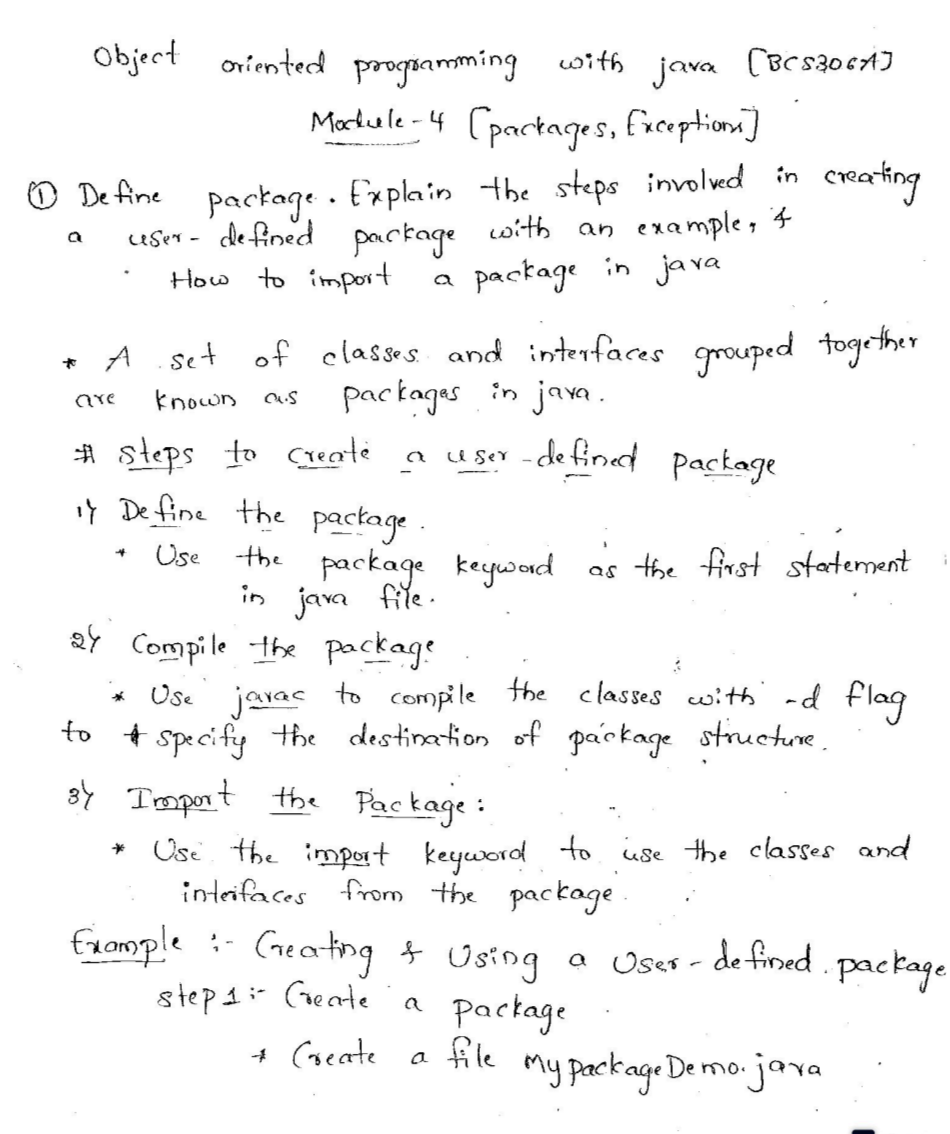 Object oriented programming with java [BCS306A]
Module-4 [packages, Exceptions]
① Define package. Explain the steps involved in creating
a user-defined package with an example, &
How to import a package in java
* A set of classes and interfaces grouped together
are known as packages in java.
# Steps to create a user-defined package
1) Define the package.
* Use the package keyword as the first statement
in java file.
2) Compile the package
* Use javac to compile the classes with -d flag
to specify the destination of package structure.
3) Import the Package:
* Use the import keyword to use the classes and
interfaces from the package.
Example :- Creating & Using a User-defined package
step 1:- Create a package
* Create a file MypackageDemo.java